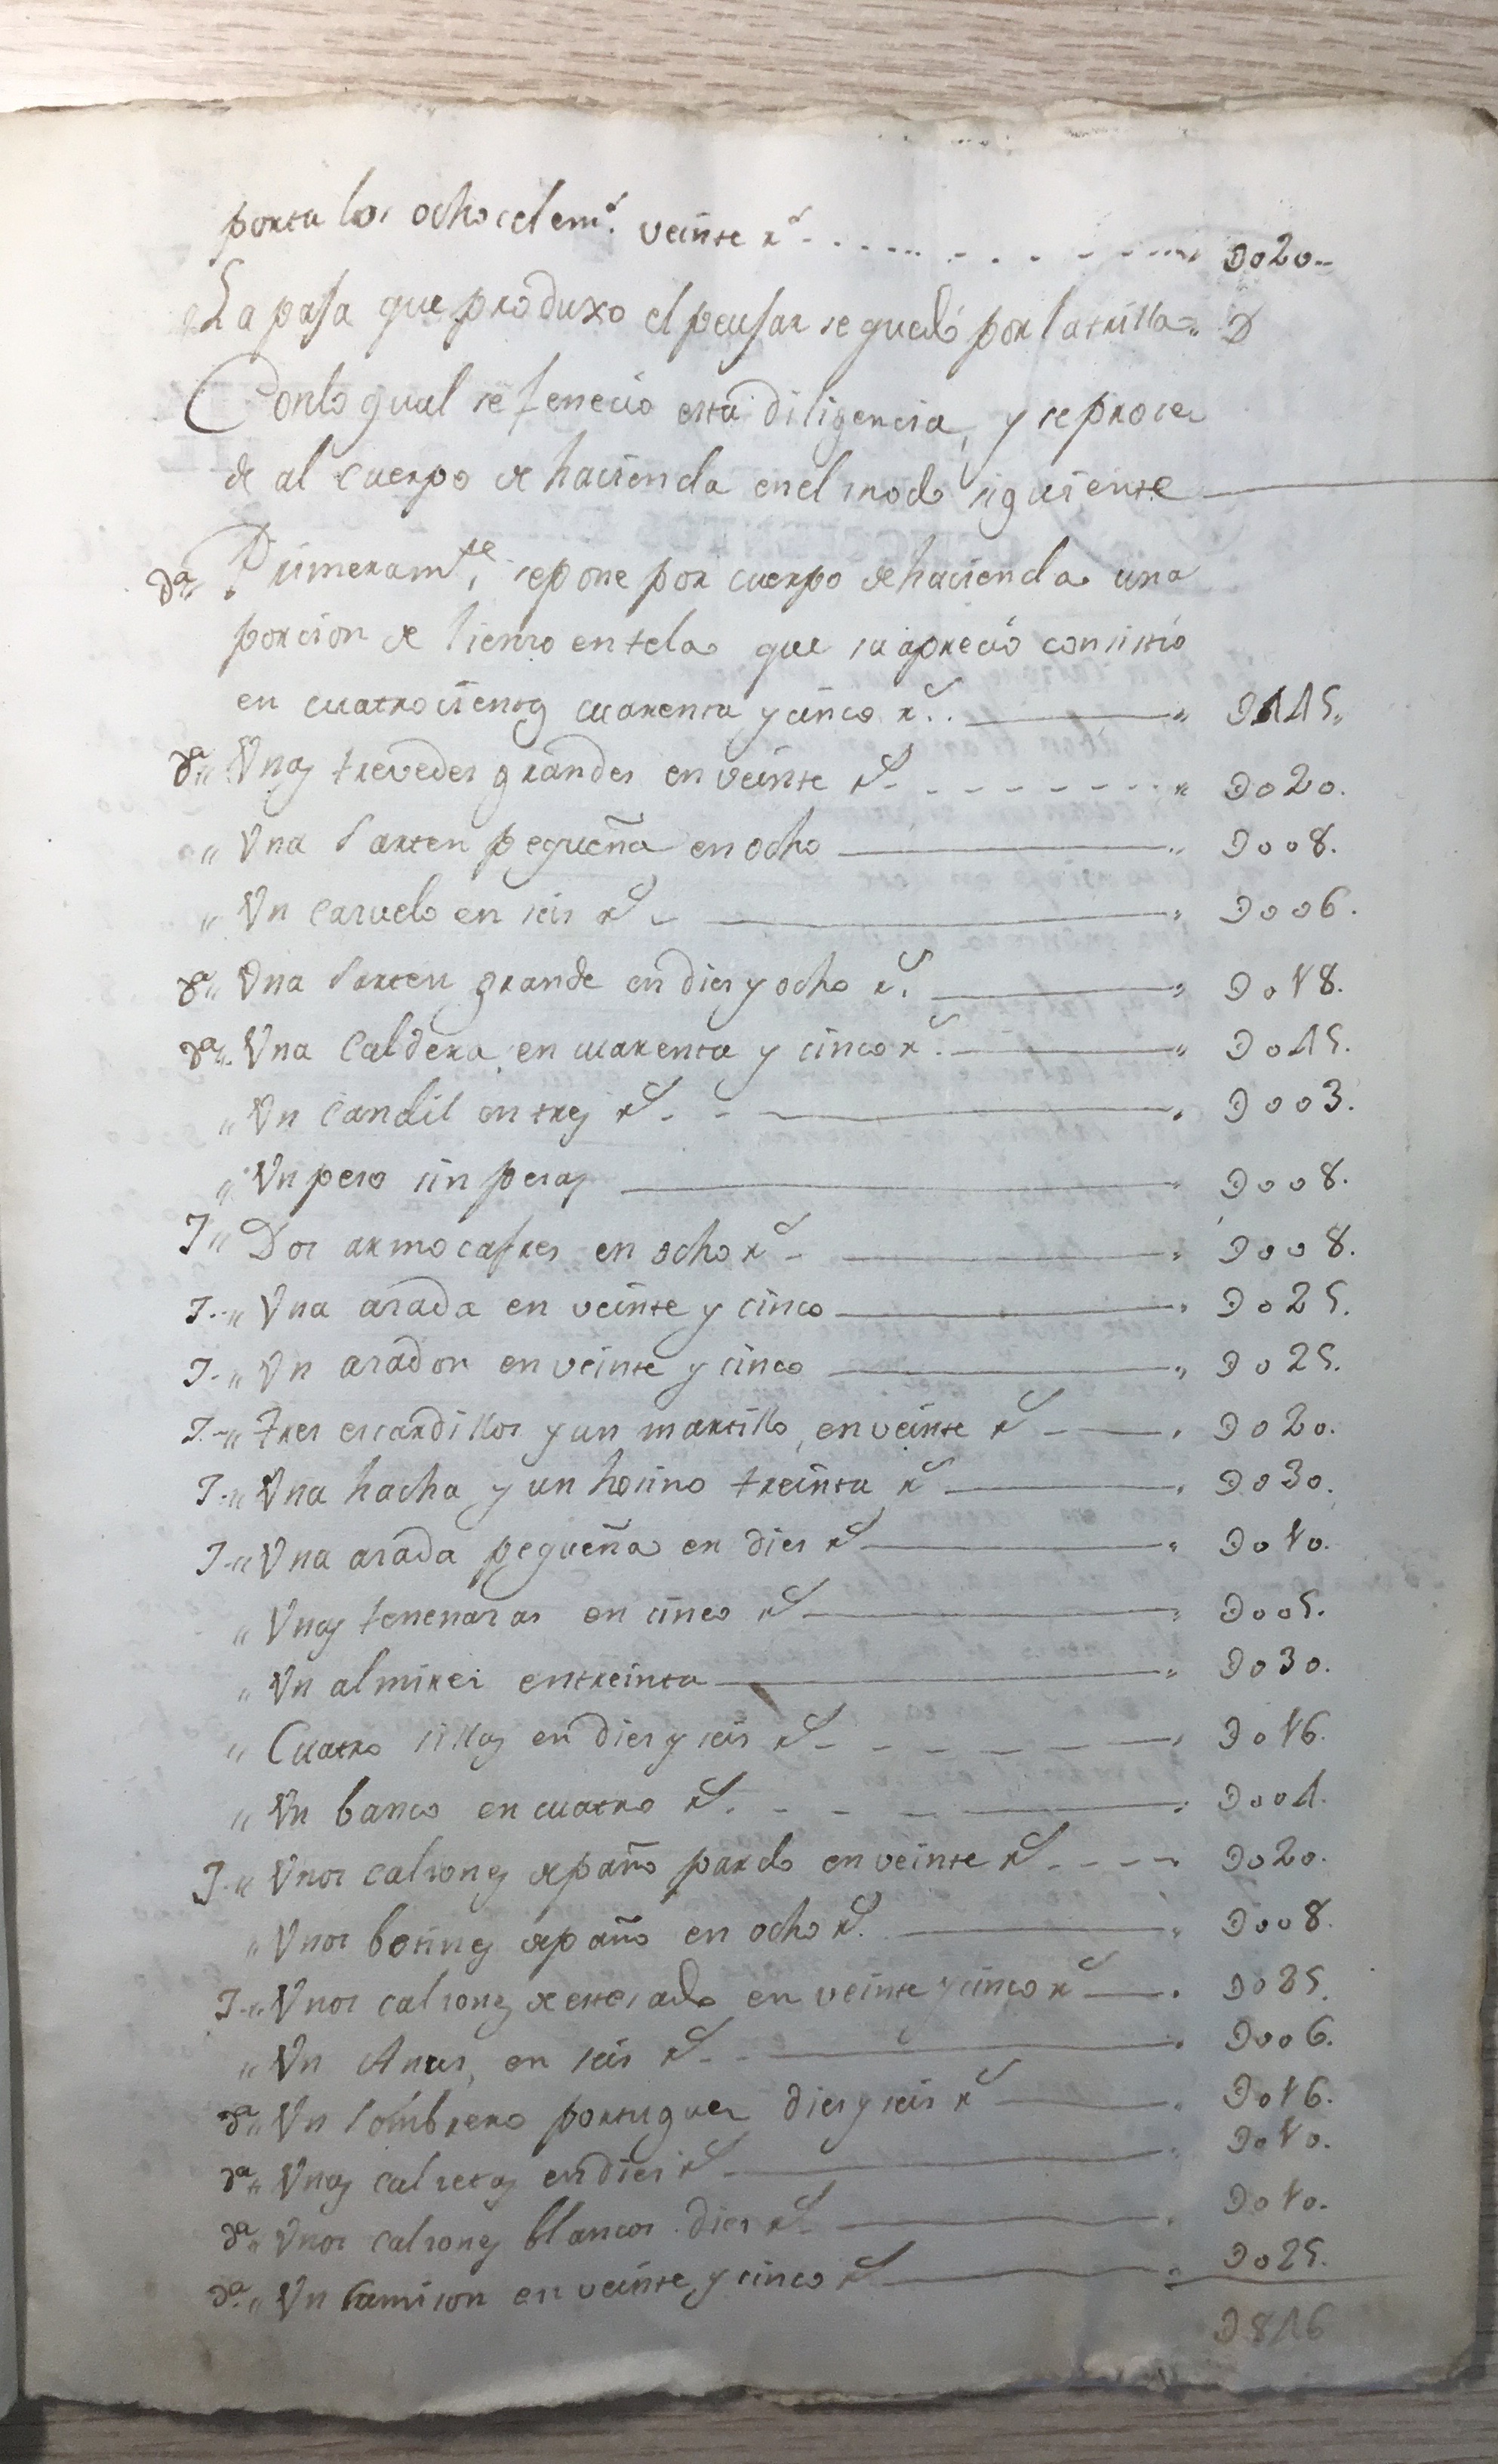 porta los ocho celem.s veinte r.s - - - - - - - - - - D020-
La pasa que produxo el peusar se quedó por la trilla = D
Conlo qual se fenecio esta diligencia, y se proce
de al cuerpo de hacienda en el modo siguiente
da Primeram.te, se pone por cuerpo de hacienda una
porcion de lienso en tela que su aprecio consistio
en cuatrocientos cuarenta y cinco r.s. — D445.
da „ Unas trevedes grandes en veinte rs - - - - - - - „ D020.
„ Una Sarten pequeña en ocho — „ D008.
„ Un casuelo en seis rs — „ D006.
da „ Una Sarten grande en dies y ocho r.s — „ D018.
da „ Una Caldera en cuarenta y cinco r.s — „ D045.
„ Un Candil en tres rs - - — „ D003.
„ Un peso sin pesas — „ D008.
J „ Dos armocafres en ocho rs - — „ D008.
J. „ Una asada en veinte y cinco — „ D025.
J. „ Un asadon en veinte y cinco — „ D025.
J. „ Tres escardillos y un martillo, en veinte rs - — . D020.
J. „ Una hacha y un hosino treinta rs — . D030.
J. „ Una asada pequeña en dies rs — „ D010.
„ Unas tenenasas en cinco rs — „ D005.
„ Un almires en treinta — „ D030.
„ Cuatro sillas en dies y seis rs - - - - — „ D016.
„ Un banco en cuatro rs. - - - — „ D004.
J. „ Unos calsones de paño pardo en veinte rs - - - - D020.
„ Unos botines de paño en ocho rs. — „ D008.
J. „ Unos calsones de estesado en veinte y cinco rs — . D025.
„ Un en seis rs - - — . D006.
da „ Un Sombrero portugues dies y seis rs — . D016.
da „ Unas calsetas en dies rs - — „ D010.
da „ Unos calsones blancos dies rs — . D010.
da „ Un Camison en veinte y cinco rs — „ D025.
D846